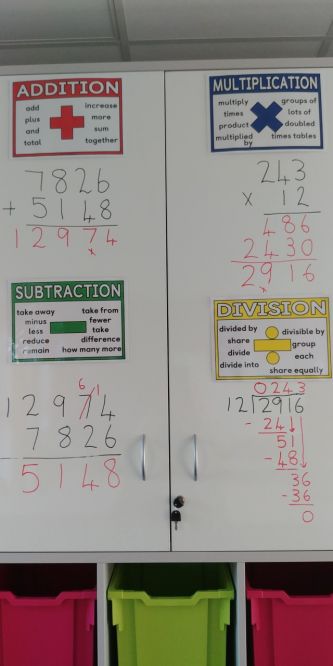 ADDITION
add increase
plus more
and sum
total together
7826
+ 5148
12974
SUBTRACTION
take away take from
minus fewer
less take
reduce difference
remain how many more
6 1
12974
7826
5148
MULTIPLICATION
multiply groups of
times lots of
product doubled
multiplied by times tables
243
x 12
486
2430
2916
DIVISION
divided by divisible by
share group
divide each
divide into share equally
0243
12 2916
- 24
51
- 48
36
- 36
0